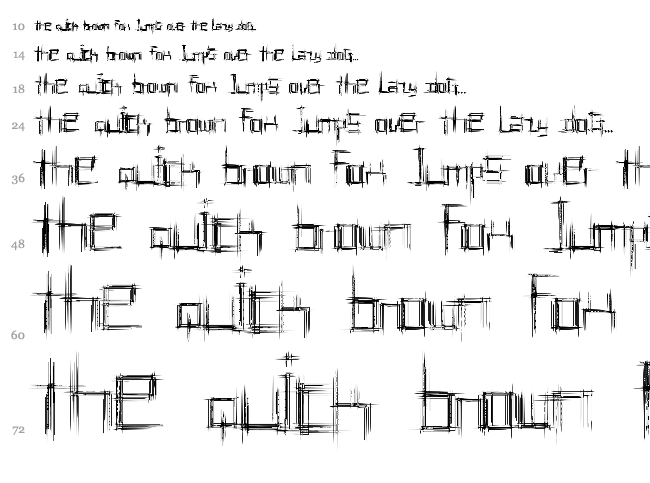 10 the quick brown fox jumps over the lazy dog...
14 the quick brown fox jumps over the lazy dog...
18 the quick brown fox jumps over the lazy dog...
24 the quick brown fox jumps over the lazy dog...
36 the quick brown fox jumps over th
48 the quick brown fox jump
60 the quick brown fox
72 the quick brown